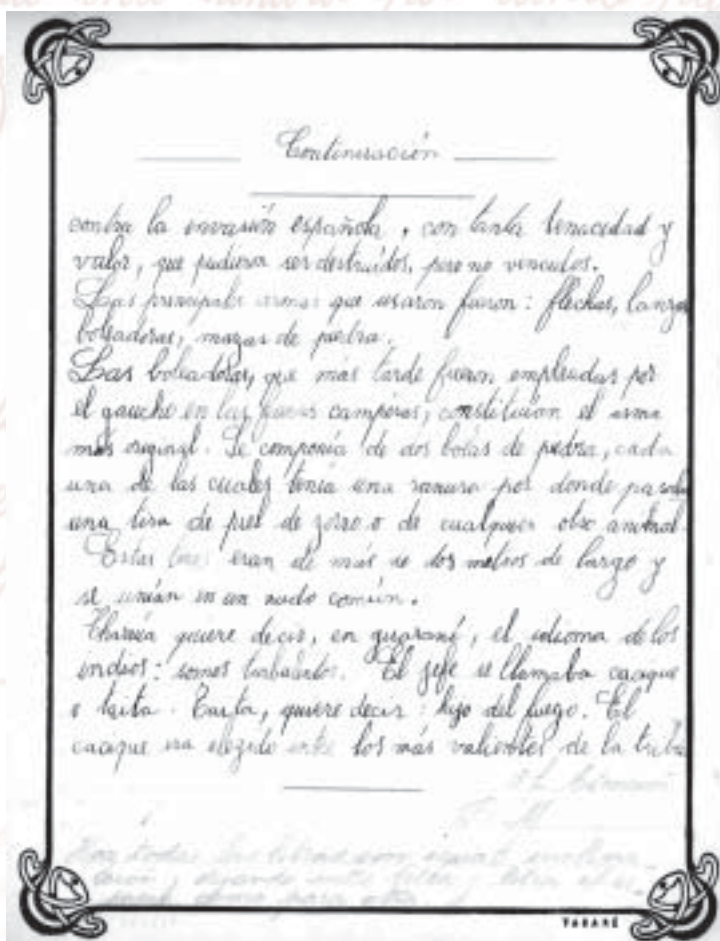 Continuación
contra la invasión española, con tanta tenacidad y
valor, que pudieron ser destruídos, pero no vencidos.
Las principales armas que usaron fueron: flechas, lanzas
boleadoras, mazas de piedra.
Las boleadoras, que más tarde fueron empleadas por
el gaucho en las faenas camperas, constituían el arma
más original. Se componía de dos bolas de piedra, cada
una de las cuales tenía una ranura por donde pasaba
una tira de piel de zorro o de cualquier otro animal.
Estas eran de más de dos metros de largo y
se unían en un nudo común.
Charrúa quiere decir, en guaraní, el idioma de los
indios: somos turbulentos. El jefe se llamaba cacique
o taita. Taita, quiere decir: hijo del fuego. El
cacique era elegido entre los más valientes de la tribu
Haz todas las letras con igual inclina-
ción, dejando entre letra y letra el es-
para otra.
TABARÉ